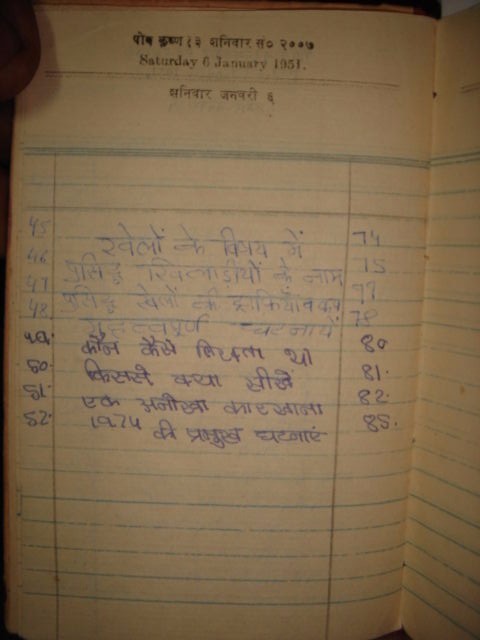 पोष कृष्ण १३ शनिवार सं० २००७
Saturday 6 January 1951.
शनिवार जनवरी ६
45 खेलों के विषय में 74
46 प्रसिद्ध खिलाड़ीयों के नाम 75
47 प्रसिद्ध खेलों की ट्राफियाँ व कप 77
48 महत्वपूर्ण घटनायें 78
49. कौन कैसे लिखता था 80
50. किससे क्या सीखें 81.
51. एक अनोखा कारखाना 82.
52. 1974 की प्रमुख घटनाएं 85.